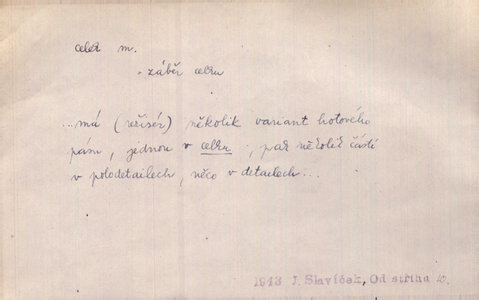 celek m.
záběr celku
...má (režisér) několik variant hotového
pásu, jednou v celku, pak několik částí
v polodetailech, něco v detailech...
1943 J. Slavíček, Od střihu 10.